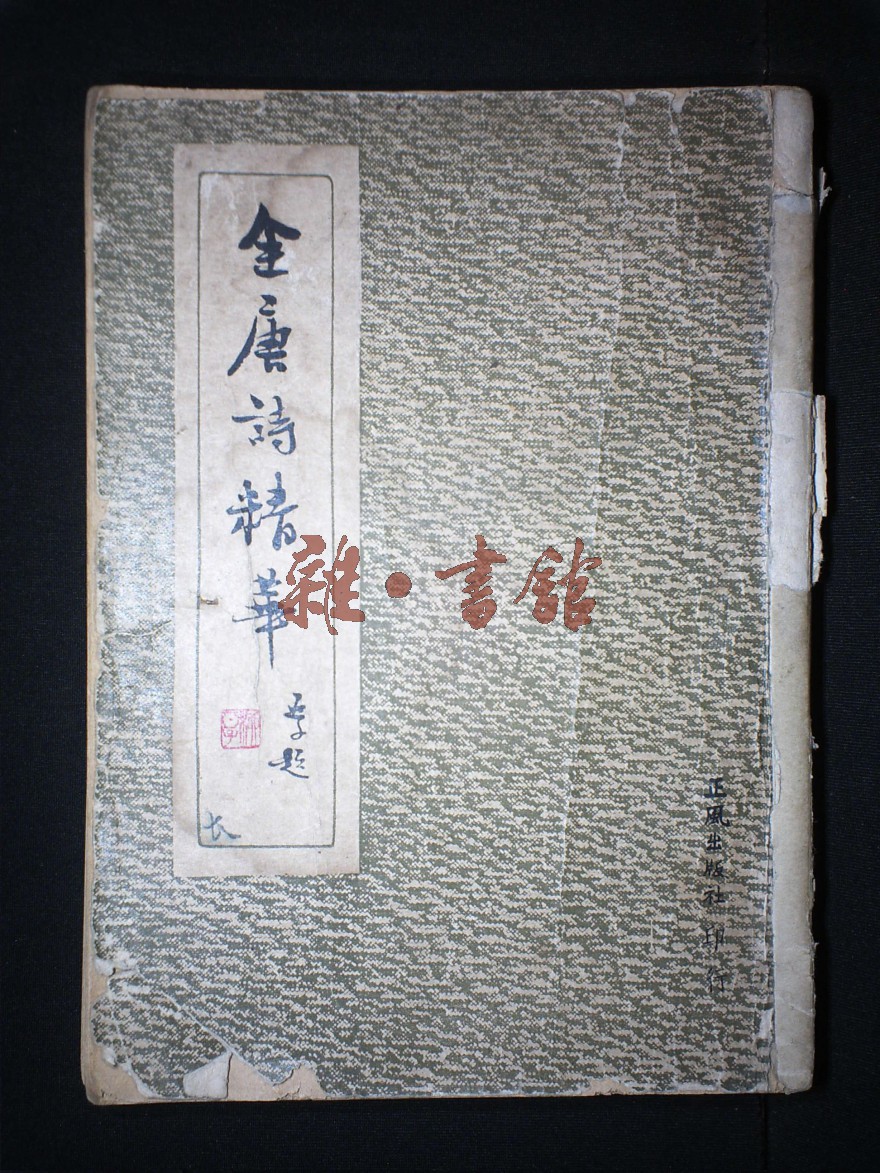 全唐詩精華
題
长
正風出版社印行
雜·書館